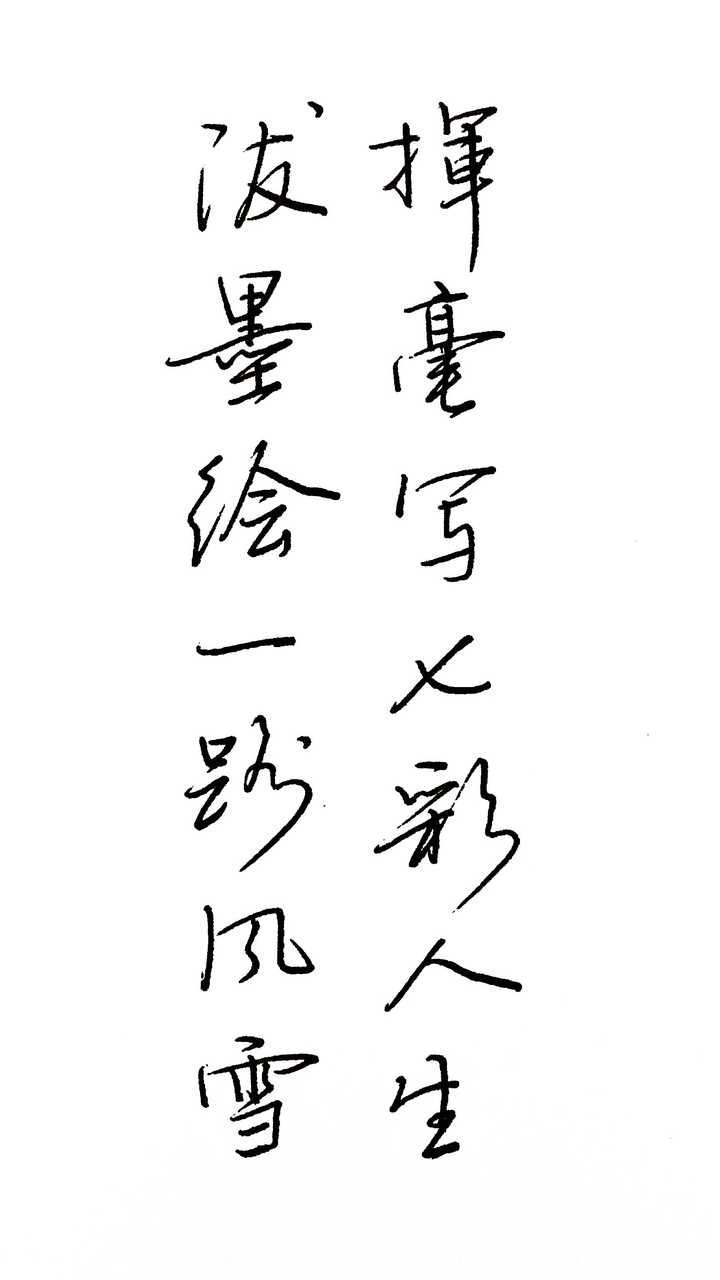 揮毫写七彩人生
泼墨绘一路风雪